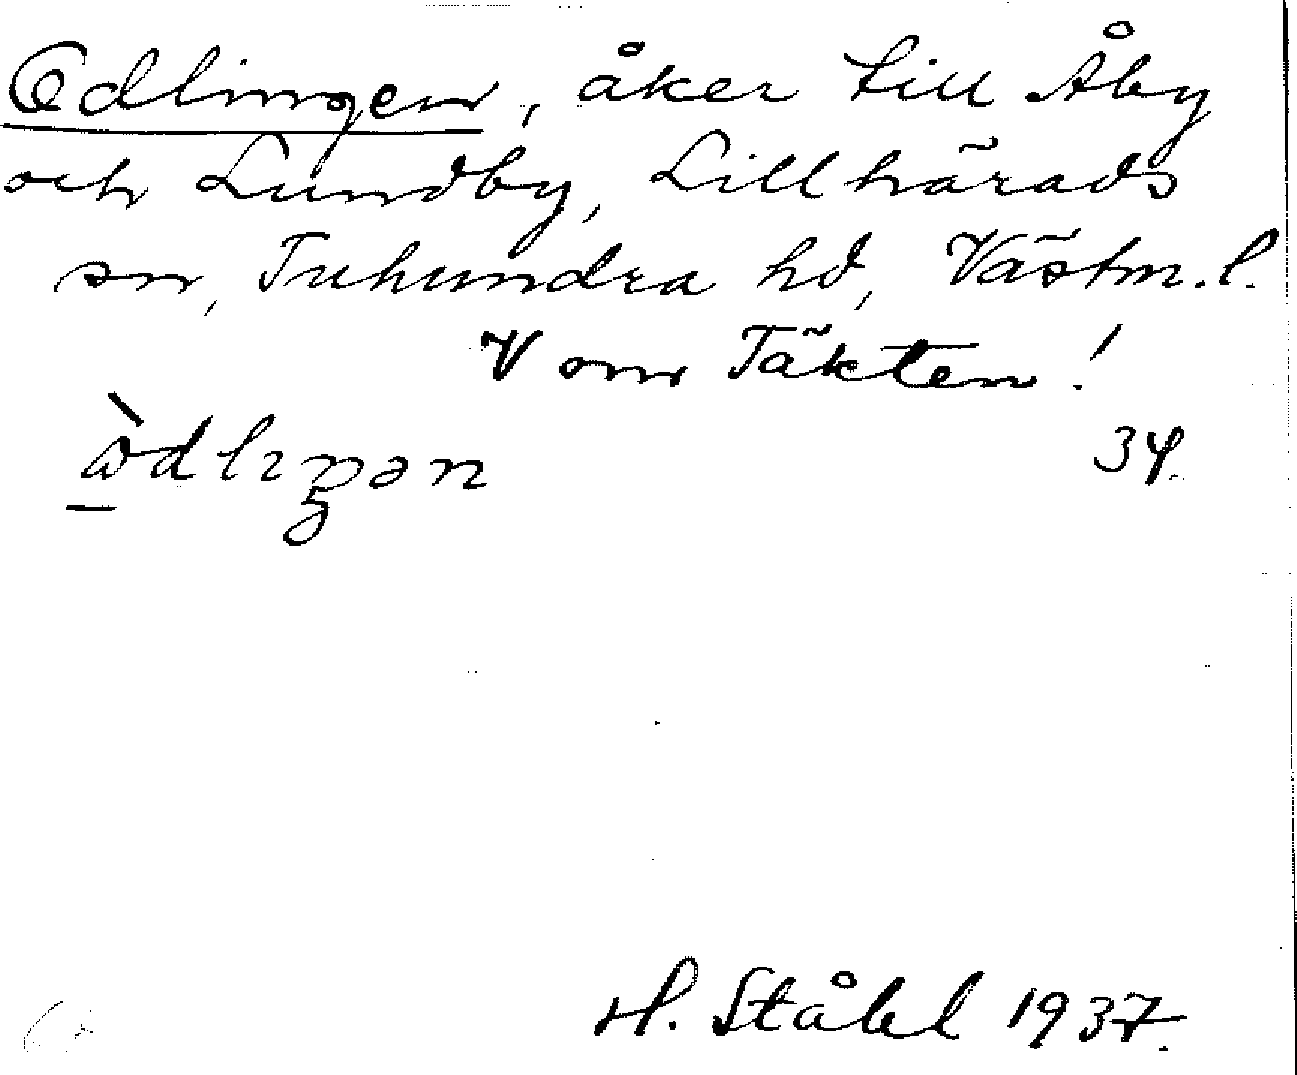 Odlingen, åker till Åby
och Lundby, Lillhärads
sn, Tuhundra hd, Västm.l.
V om Täkten!
34.
H. Ståhl 1937.